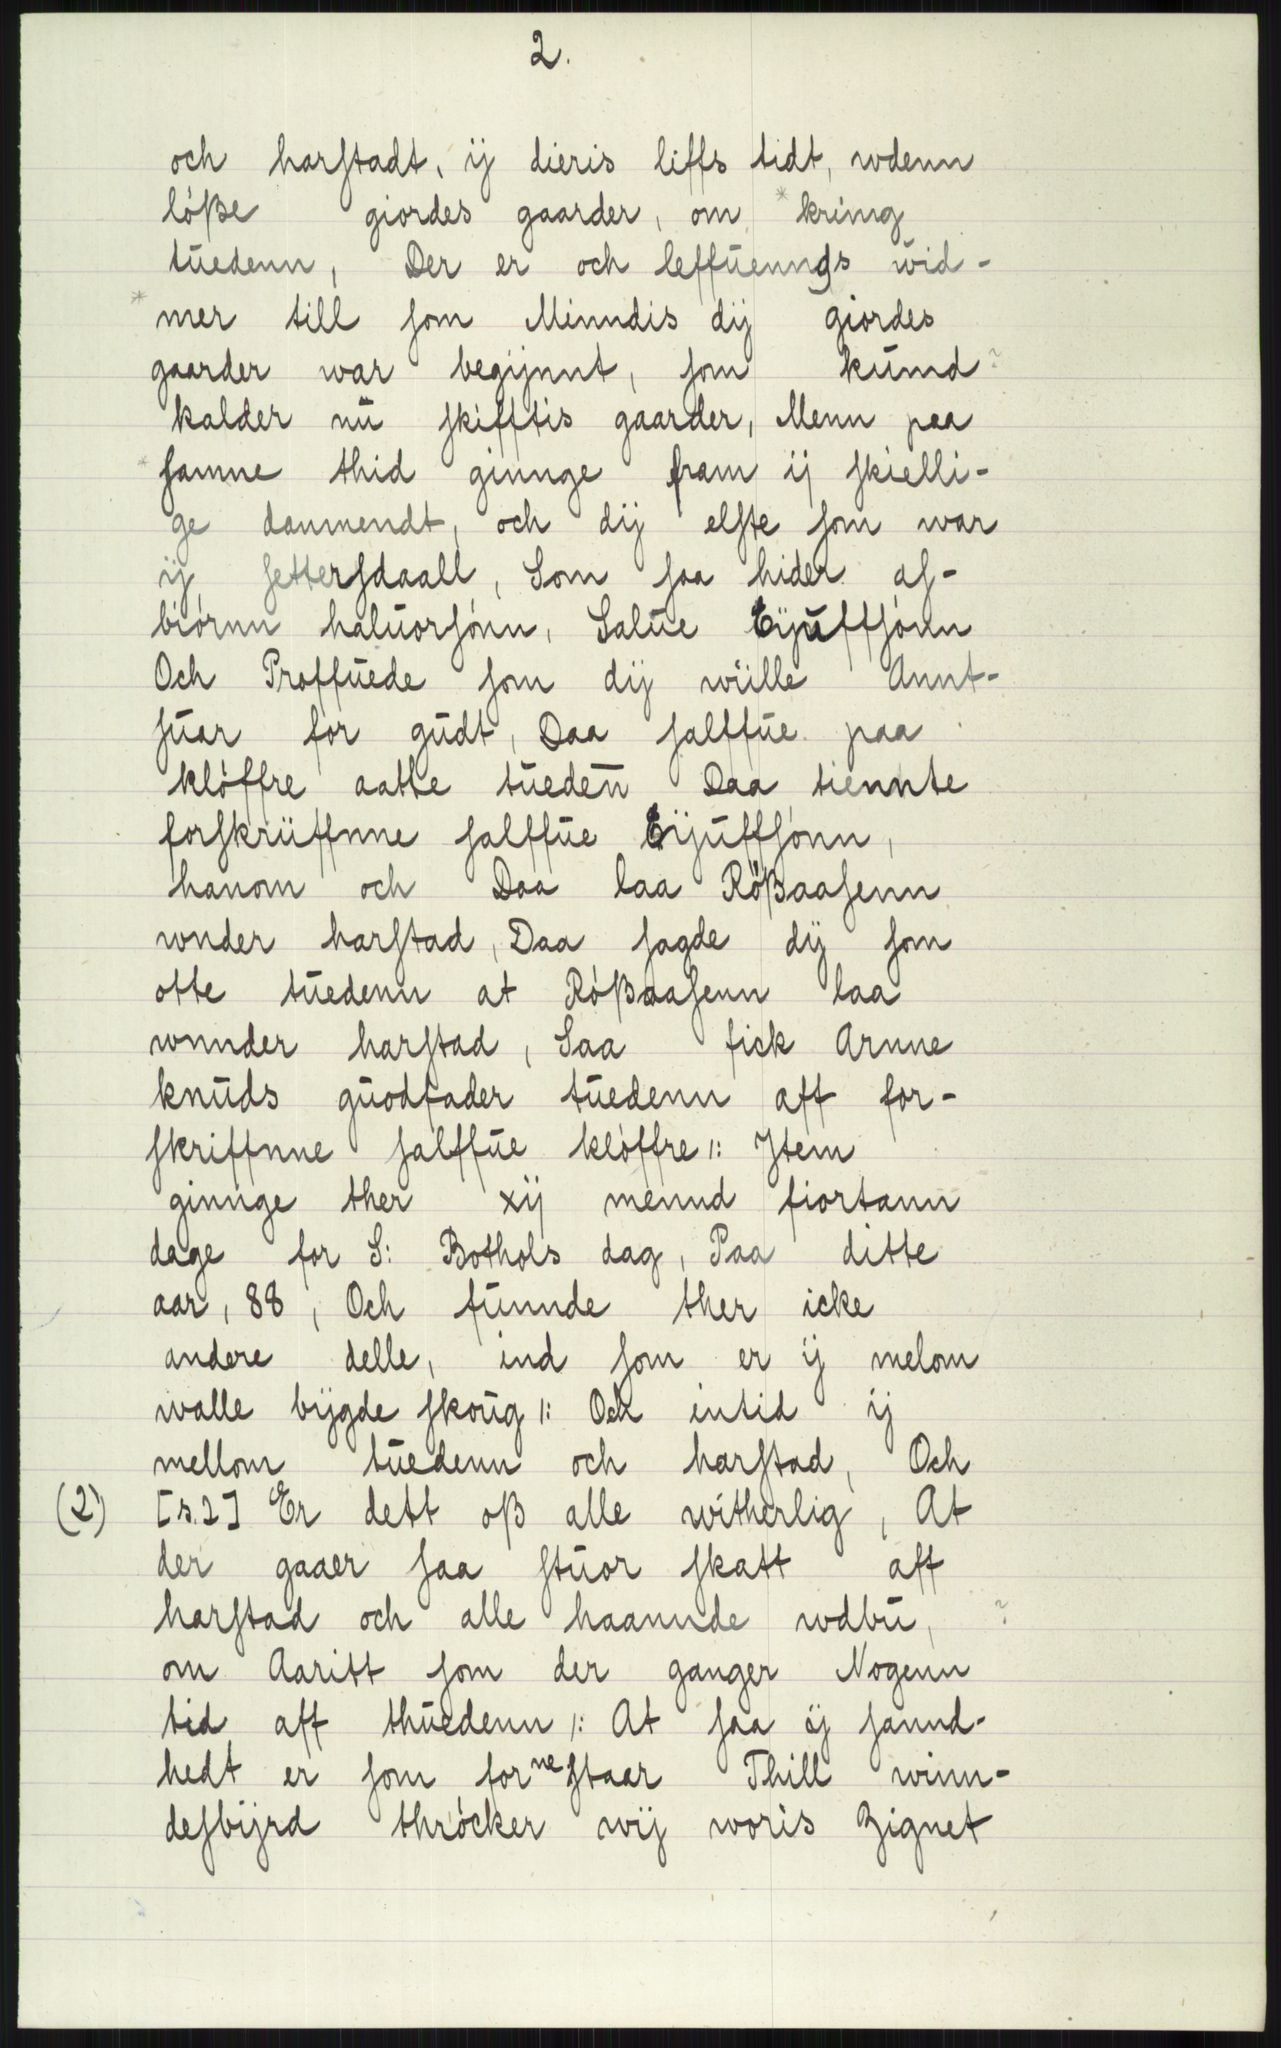 2.
och harſtadt, ij dieris liffs tidt, wdenn
lóße giordes gaarder, om *kring
tűedenn, Der er och leffűennds wid-
*mer till ſom Minndis dij giordes
gaarder war begijnnt, ſom kűmd ?
kalder nű ſkifftis gaarder, Menn paa
*ſamne thid ginnge fram ij ſkielli-
ge danmendt, och dij elſte ſom war
ij ſetterſdaall, Som ſaa hider aſ-
biórnn halűorſónn, Salűe Eijűffſónn
Och Proffűede ſom dij wille Annt-
ſűar for gűdt, Daa ſalffűe paa
klóffre aatte tűedeñ Daa tiennte
forſkriiffnne ſalffűe Eijűffſónn,
hanom och Daa laa Rößaaſenn
wnder harſtad, Daa ſagde dij ſom
otte tűedenn at Rößaaſenn laa
wnnder harſtad, Saa fick Arnne
knűds gűodfader tűedenn aff for-
ſkriffnne ſalffűe klóffre /: Jtem
ginnge ther xij mennd fiortann
dage for S: Bothols dag, Paa ditte
aar, 88, Och fűnnde ther icke
andere delle, ind ſom er ij melom
walle bijgde ſkoűg /: Och intid ij
mellom tűedenn och harſtad, Och
(2) [s.2] Er dett oß alle witherlig, At
der gaaer ſaa ſtűor ſkatt aff
harſtad och alle haannde wdbű, ?
om Aaritt ſom der ganger Nogenn
tid aff thűedenn /: At ſaa ij ſannd-
hedt er ſom forneſtaar Thill winn-
deſbijrd thrócker wij woris Zignet